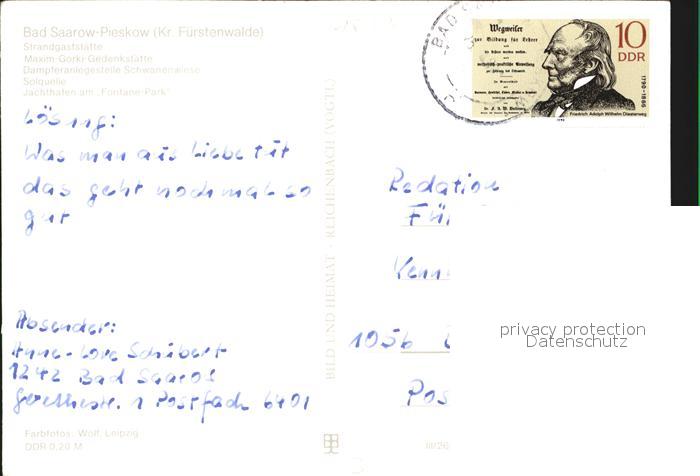 Bad Saarow-Pieskow (Kr. Fürstenwalde)
Strandgaststätte
Maxim-Gorki-Gedenkstätte
Dampferanlegestelle Schwanenwiese
Solquelle
Jachthafen am „Fontane-Park"
Lösung:
Was man aus Liebe tut
das geht nochmal so
gut
Absender:
Anne-Lore Schubert
1242 Bad Saarow
Goethestr. 1 Postfach 6401
Farbfotos: Wolf, Leipzig
DDR 0,20 M
BILD UND HEIMAT · REICHENBACH (VOGTL)
BAD SA
Wegweiser
zur Bildung für Lehrer
10
DDR
1790-1866
Friedrich Adolph Wilhelm Diesterweg
1990
Redation
Fü
Kenn
1056
Pos
III/26
privacy protection
Datenschutz